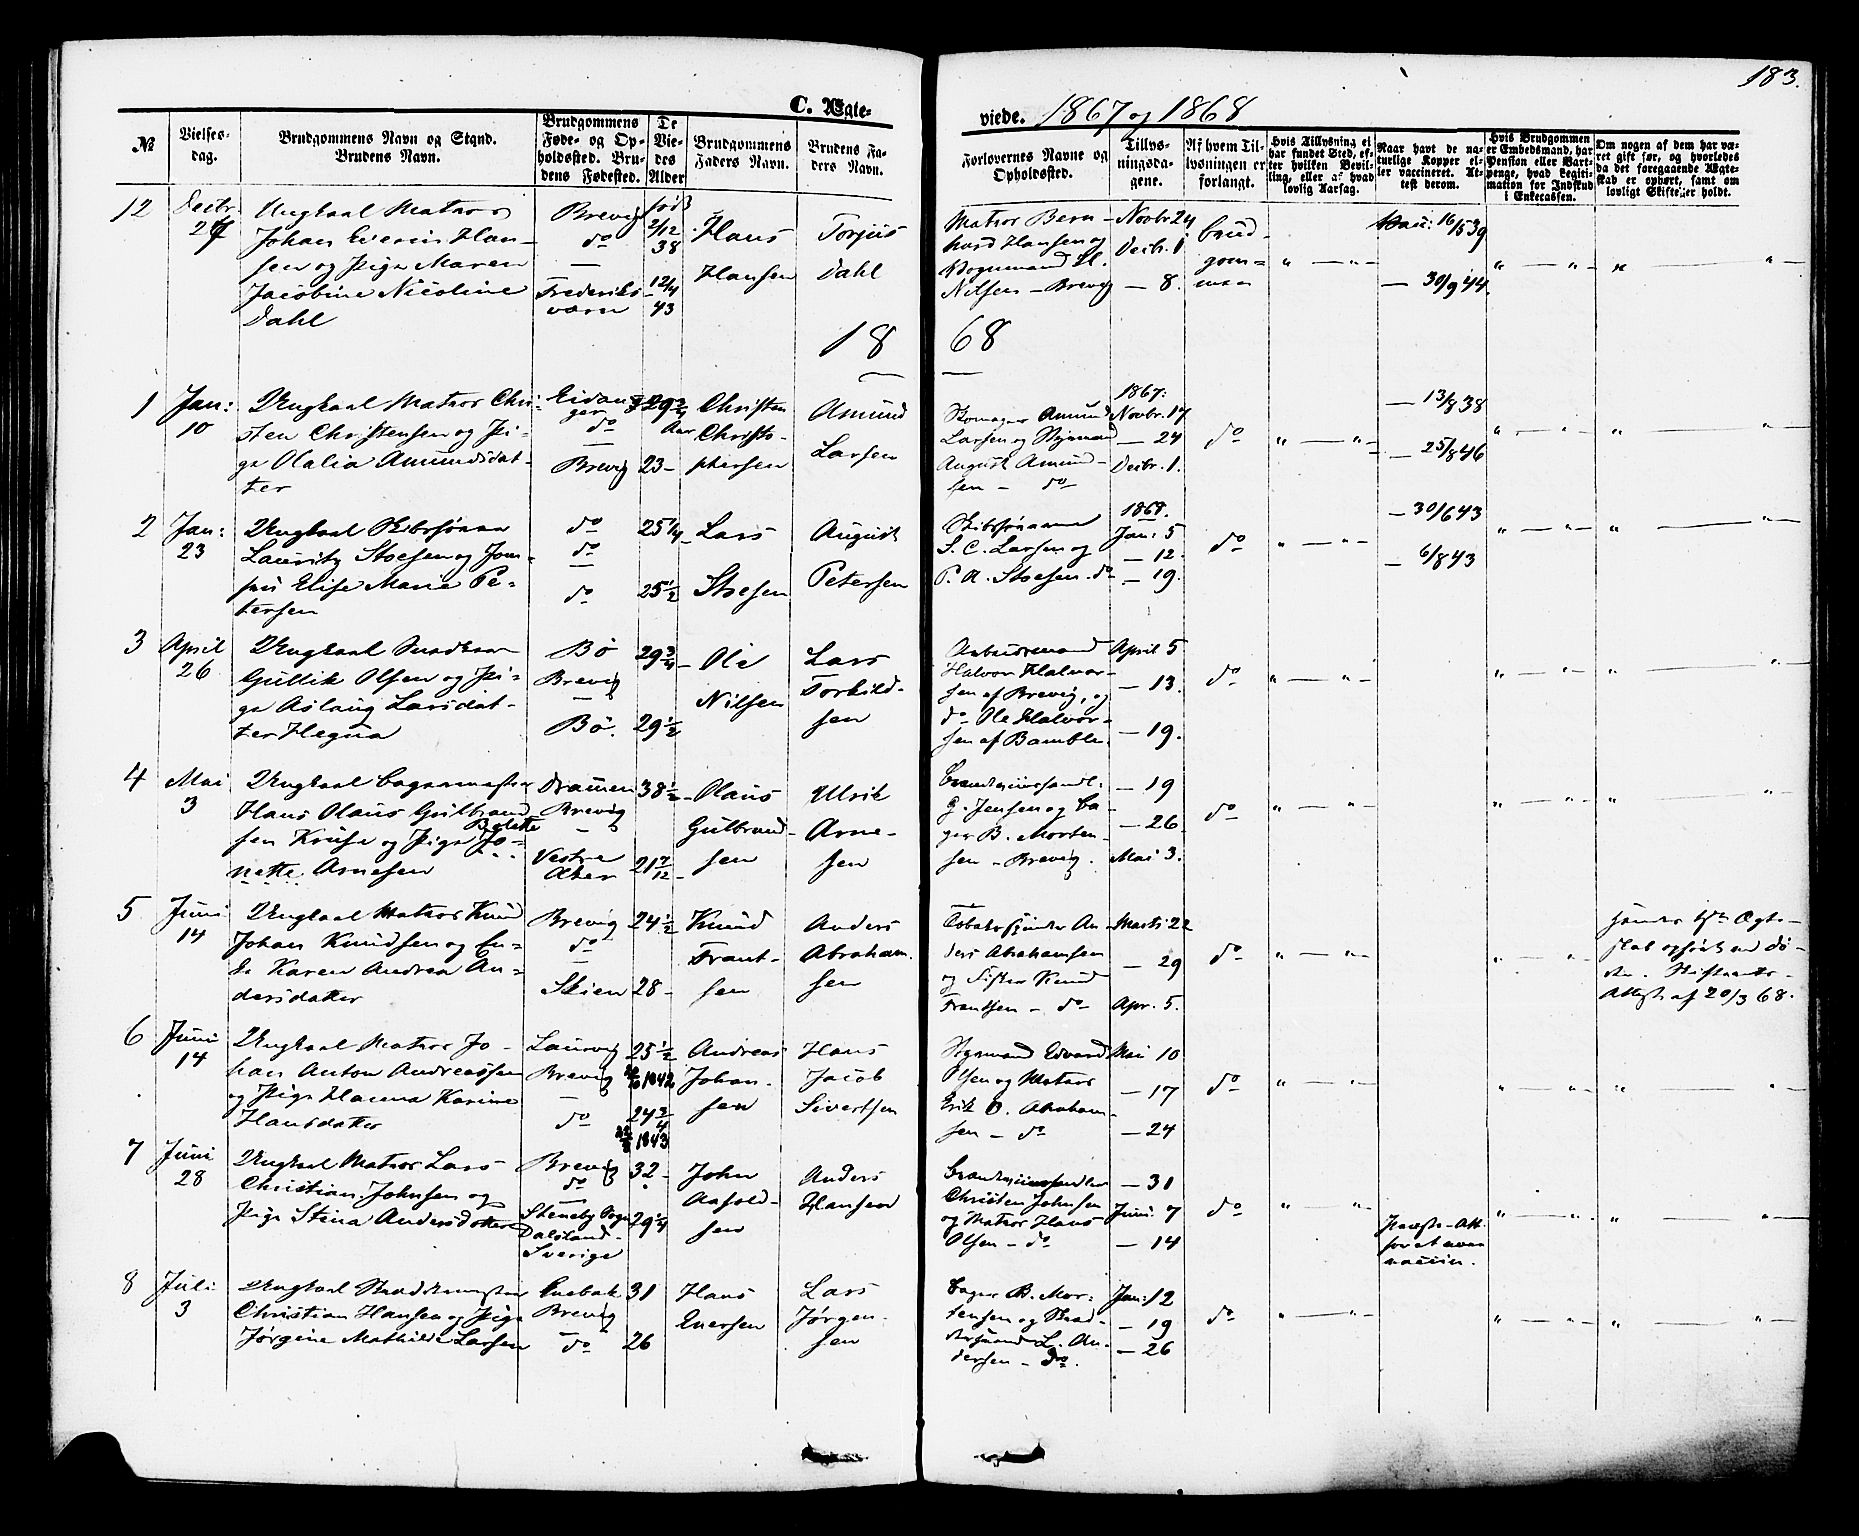 183.
C. Ægte-
viede. 1867 og 1868
№
Vielses-
dag.
Brudgommens Navn og Stand.
Brudens Navn.
Brudgommens
Føde- og Op-
holdssted. Bru-
dens Fødested.
De
Vie-
des
Alder
Brudgommens
Faders Navn.
Brudens Fa-
ders Navn.
Forlovernes Navne og
Opholdssted.
Tillys-
ningsda-
gene.
Af hvem Til-
lysningen er
forlangt.
Hvis Tillysning ei
har fundet Sted, ef-
ter hvilken Bevil-
ling, eller af hvad
lovlig Aarsag.
Naar havt de na-
turlige Kopper el-
ler vaccineret. At-
test derom.
Hvis Brudgommen
er Embedsmand, har
Pension eller Vart-
penge, hvad Legiti-
mation for Indskud
i Enkecassen.
Om nogen af dem har væ-
ret gift før, og hvorledes
da det foregaaende Ægte-
skab er ophørt, samt om
lovligt Skifte er holdt.
12
Decbr.
27
Ungkarl Matros
Johan Everin Han-
sen og Pige Maren
Jacobine Nicoline
Dahl
Brevig
do
—
Frederiks-
værn
født
2/12
38
12/4
43
Hans
Hansen
Torjus
Dahl
Matros Bern-
hard Hansen og
Nilsen – Brevig
Novbr. 24
Decbr. 1
— 8.
Brud-
gom-
men
Vacc: 16/5 39
— 30/9 44.
" — " —
18
68
1
Jan:
10
Ungkarl Matros Chri-
sten Christensen og Pi-
ge Olalia Amundsdat-
ter
Eidan-
ger
do
—
Brevig
29 3/4
Aar
23 –
Christen
Christo-
phersen
Amund
Larsen
Skomager Amund
Larsen og Styrmand
August Amund-
sen – do
1867:
Novbr. 17
— 24
Decbr. 1.
do
" — " —
— 13/8 38
— 25/8 46
2
Jan:
23
Ungkarl Skibstømm
Lauritz Stoesen og Jom-
fru Elise Marie Pe-
tersen
do
do
—
do
25 1/4
25 1/2
Lars
Stoesen
August
Petersen
Skibstømm
S. C. Larsen og
P. A. Stoesen. do
1868.
Jan: 5
— 12.
— 19.
do
" — " —
— 30/6 43
— 6/8 43
3
April
26
Ungkarl
Gullik Olsen og Pi-
ge Aslaug Larsdat-
ter Hegna
Bø
Brevig
—
Bø.
29 3/4
29 1/2
Ole
Nilsen
Lars
Torkild-
sen
Arbeidsmand
Halvor Halvor-
sen af Brevig, og
do Ole Halvor-
sen af Bamble.
April 5
— 13.
— 19.
do
" — " —
4
Mai
3
Ungkarl Bagermester
Hans Olaus Gulbrand-
sen Kruse og Pige Bolette Jo-
nette Arnesen
Dramen
Brevig
—
Vestre
Aker
38 1/2
21 7/12
Olaus
Gulbrand-
sen
Ulrik
Arne-
sen
Brændeviinshandl.
G. Jensen og Ba-
ger B. Morten-
sen – Brevig.
— 19
— 26
Mai 3.
do
" — " —
5
Juni
14
Ungkarl Matros Knud
Johan Knudsen og En-
ke Karen Andrea An-
dersdatter
Brevig
do
—
Skien
24 1/2
28 –
Knud
Frant-
sen
Anders
Abraham-
sen
Tobaksspinder An-
ders Abrahamsen
og Fisker Knud
Frantsen – do
Marts 22
— 29
Apr. 5.
do
" — " —
hendes 1ste Ægte-
skab ophørt ved Dø-
den. Skifteretts-
Attest af 20/3 68.
6
Juni
14
Ungkarl Matros Jo-
han Anton Andreassen
og Pige Hacena Karine
Hansdatter
Laurvig
Brevig
—
do
25 1/2
1842
24 3/4
1843
Andreas
Johan-
sen
Hans
Jacob
Sivertsen
Styrmand Edvard
Olsen og Matros
Erik O. Abraham-
sen – do
Mai 10
— 17
— 24
do
" — " —
7
Juni
28
Ungkarl Matros Lars
Christian Johnsen og
Pige Stina Andersdotter
Brevig
do
—
Steneby Sogn
Dalsland-
Sverige
32 –
29 1/4
John
Aasold-
sen
Anders
Hansson
Brændeviinshandler
Christen Johnsen
og Matros Hans
Olsen – do
— 31
Juni 7
— 14
do
" — " —
Præste-Att.
for at være
vaccin.
8
Juli
3
Ungkarl
Christian Hansen og Pige
Jørgine Mathilde Larsen
Enebak
Brevig
—
do
31
26
Hans
Eversen
Lars
Jørgen-
sen
Bager B. Mor-
tensen og Skræd-
dersvend L. An-
dersen – do.
Jan: 12
— 19
— 26
do
" — " —